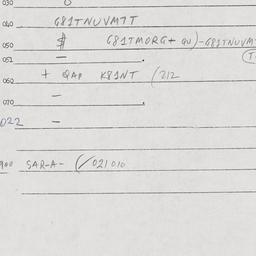 030
040 G81TNUVMTT
050 $ G81TMORG+ QU)-G81TNUVM
051 —
060 + QAP K81NT (212
— 
070
022 —
900 SAR-A- (/021010